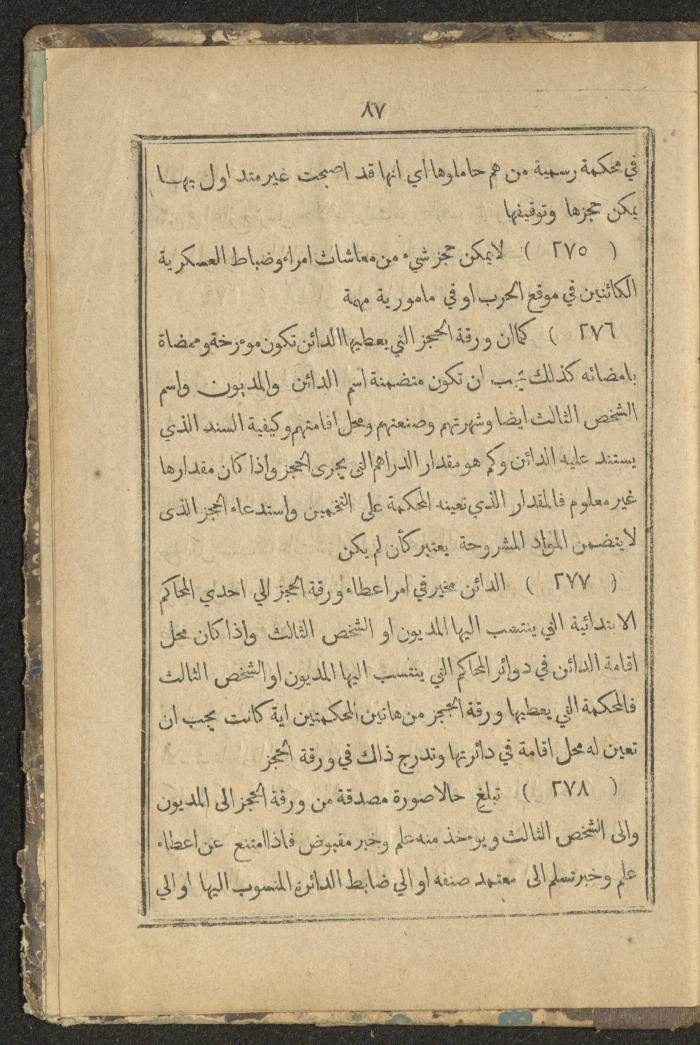 ٨٧
في محكمة رسمية من هم حاملوها اي انها قد اصبحت غير متداول بها
يمكن حجزها وتوقيفها
( ٢٧٥ ) لا يمكن حجز شيء من معاشات امراء وضباط العسكرية
الكائنين في موقع الحرب او في مامورية مهمة
٢٧٦ ) كما ان ورقة الحجز التي يعطيها الدائن تكون موءرخة وممضاة
بامضائه كذلك يجب ان تكون متضمنة اسم الدائن والمديون واسم
الشخص الثالث ايضا وشهرتهم وصنعتهم ومحل اقامتهم وكيفية السند الذي
يستند عليه الدائن وكم هو مقدار الدراهم التي يجرى الحجز واذا كان مقدارها
غير معلوم فالمقدار الذي تعينه المحكمة على التخمين واستدعاء الحجز الذى
لا يتضمن المواد المشروحة يعتبر كأن لم يكن
( ٢٧٧ ) الدائن مخير في امر اعطاء ورقة الحجز الي احدي المحاكم
الابتدائية التي ينتسب اليها المديون او الشخص الثالث واذا كان محل
اقامة الدائن في دوائر المحاكم التي ينتسب اليها المديون او الشخص الثالث
فالمحكمة التي يعطيها ورقة الحجز من هاتين المحكمتين اية كانت يجب ان
تعين له محل اقامة في دائرتها وتدرج ذالك في ورقة الحجز
( ٢٧٨ ) تبلغ حالا صورة مصدقة من ورقة الحجز الى المديون
والى الشخص الثالث ويوءخذ منه علم وخبر مقبوض فاذا امتنع عن اعطاء
علم وخبر تسلم الى معتمد صنفه او الي ضابط الدائرة المنسوب اليها او الي